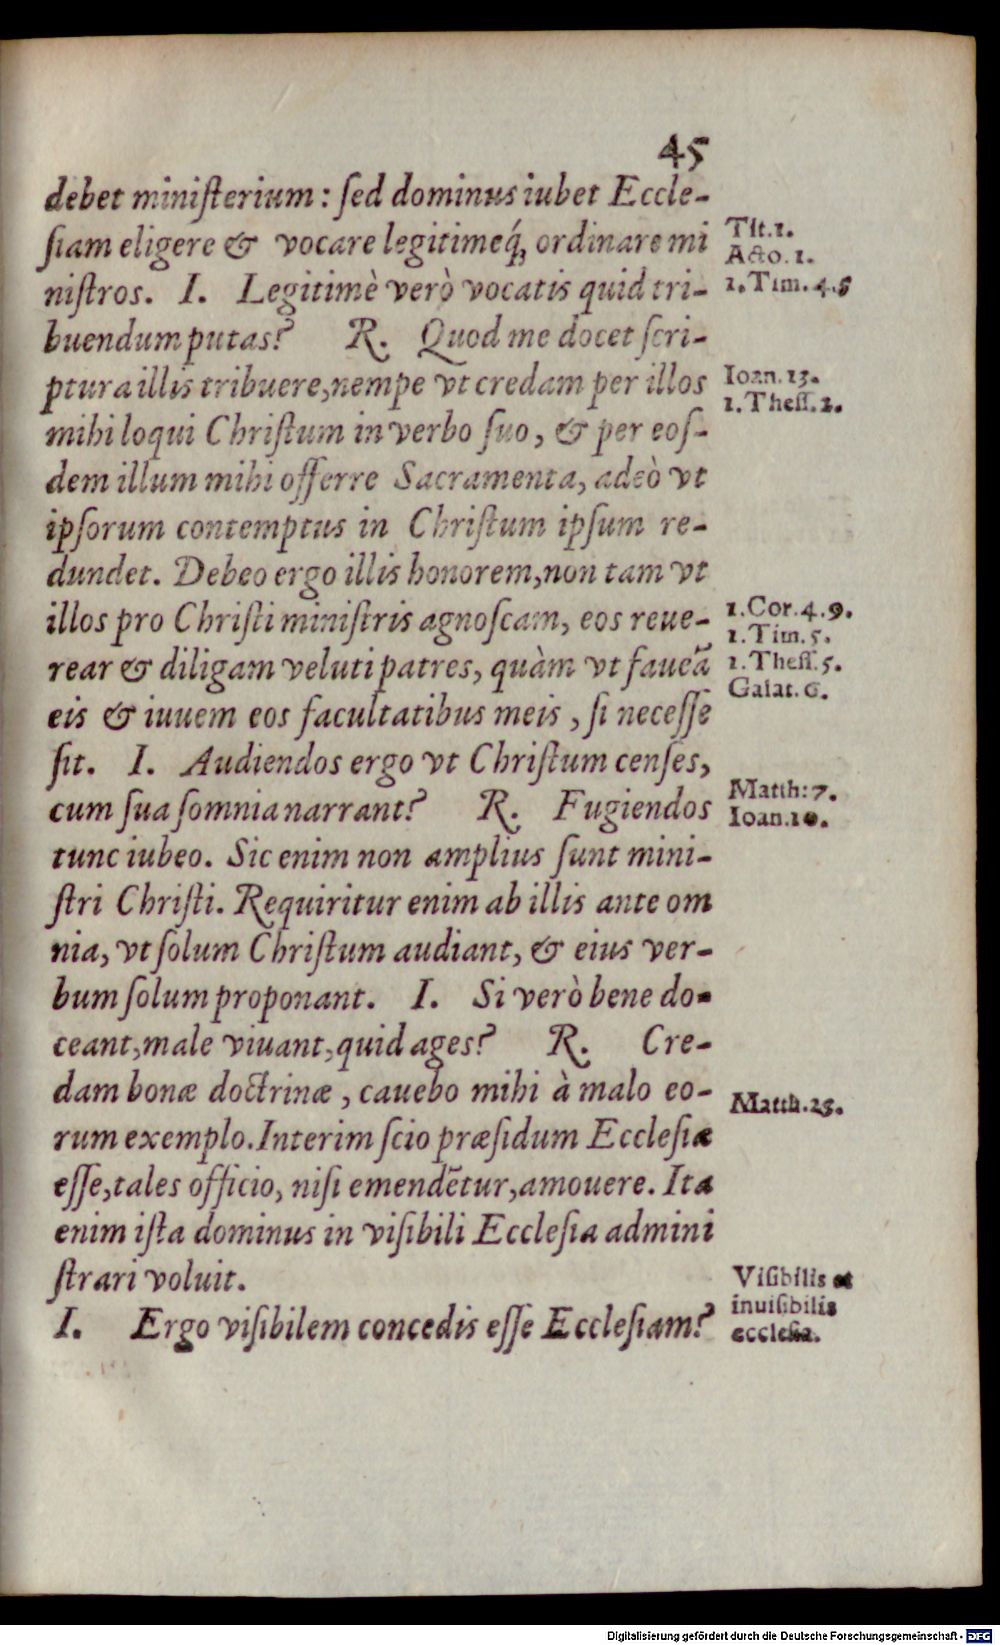 45
debet miniſterium: ſed dominus iubet Eccle-
ſiam eligere & vocare legitimeq́; ordinare mi
niſtros. I. Legitimè verò vocatis quid tri-
buendum putas? R. Quod me docet ſcri-
ptura illis tribuere, nempe vt credam per illos
mihi loqui Chriſtum in verbo ſuo, & per eoſ-
dem illum mihi offerre Sacramenta, adeò vt
ipſorum contemptus in Chriſtum ipſum re-
dundet. Debeo ergo illis honorem, non tam vt
illos pro Chriſti miniſtris agnoſcam, eos reue-
rear & diligam veluti patres, quàm vt faueã
eis & iuuem eos facultatibus meis, ſi neceſſe
ſit. I. Audiendos ergo vt Chriſtum cenſes,
cum ſua ſomnia narrant? R. Fugiendos
tunc iubeo. Sic enim non amplius ſunt mini-
ſtri Chriſti. Requiritur enim ab illis ante om
nia, vt ſolum Chriſtum audiant, & eius ver-
bum ſolum proponant. I. Si verò bene do-
ceant, male viuant, quid ages? R. Cre-
dam bonæ doctrinæ, cauebo mihi à malo eo-
rum exemplo. Interim ſcio præſidum Eccleſiæ
eſſe, tales officio, niſi emendẽtur, amouere. Ita
enim iſta dominus in viſibili Eccleſia admini
ſtrari voluit.
I. Ergo viſibilem concedis eſſe Eccleſiam?
Tit. 1.
Acto. 1.
1. Tim. 4.5
Ioan. 13.
1. Theſſ. 2.
1. Cor. 4. 9.
1. Tim. 5.
1. Theſſ. 5.
Galat. 6.
Matth: 7.
Ioan. 10.
Matth. 23.
Viſibilis et
inuiſibilis
eccleſia.
Digitalisierung gefördert durch die Deutsche Forschungsgemeinschaft - DFG